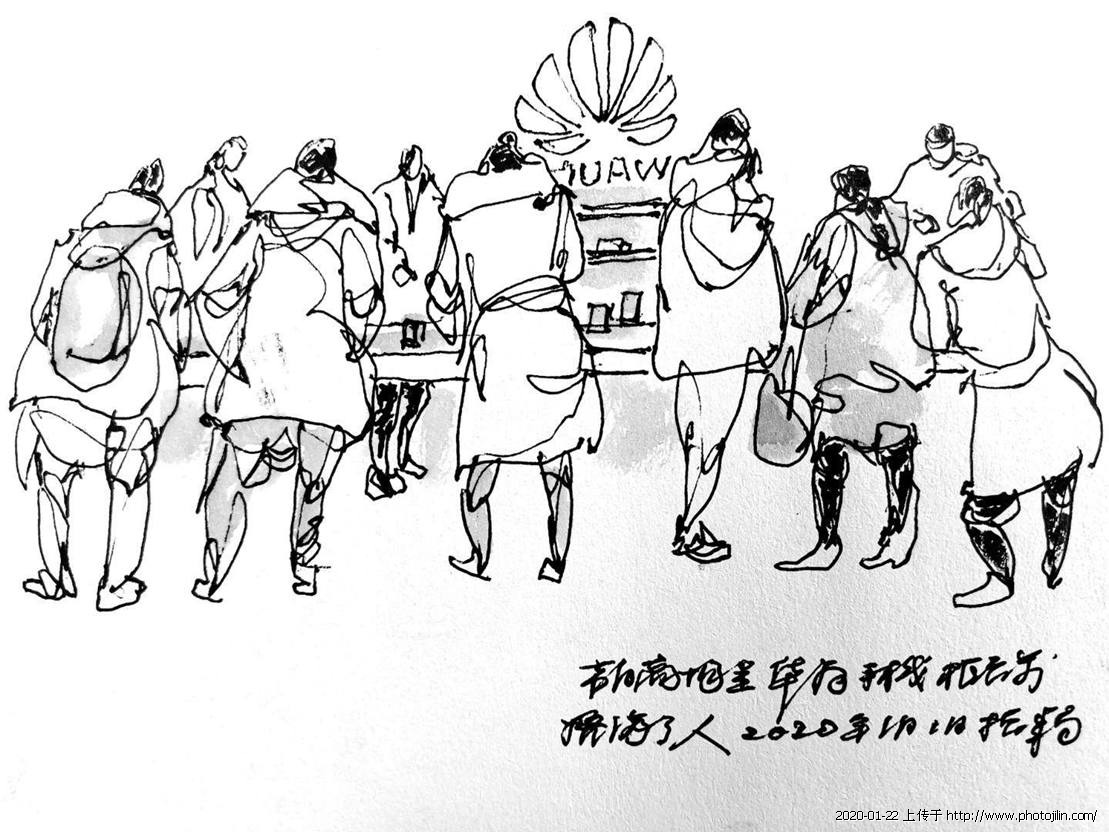 HUAW
华为手机柜台前
挤满了人 2020年1月1日
2020-01-22 上传于 http://www.photojilin.com/